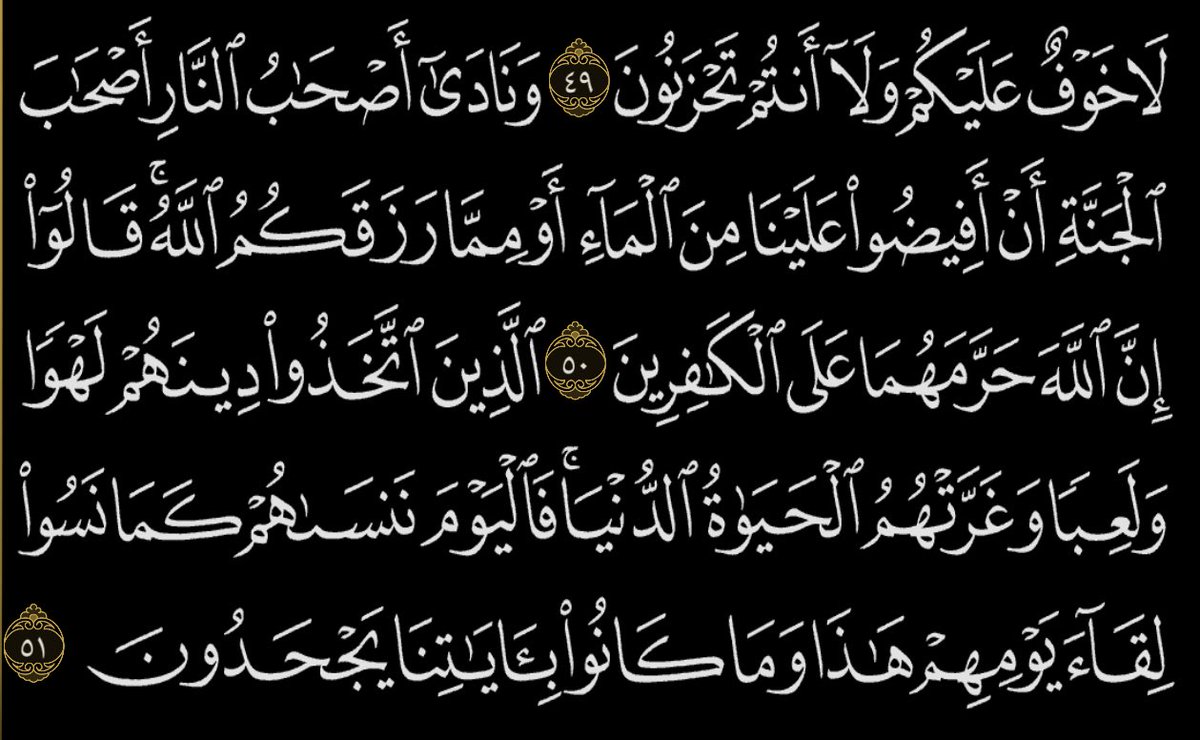 لَا خَوْفٌ عَلَيْكُمْ وَلَآ أَنتُمْ تَحْزَنُونَ ٤٩ وَنَادَىٰٓ أَصْحَٰبُ ٱلنَّارِ أَصْحَٰبَ
ٱلْجَنَّةِ أَنْ أَفِيضُوا۟ عَلَيْنَا مِنَ ٱلْمَآءِ أَوْ مِمَّا رَزَقَكُمُ ٱللَّهُ ۚ قَالُوٓا۟
إِنَّ ٱللَّهَ حَرَّمَهُمَا عَلَى ٱلْكَٰفِرِينَ ٥٠ ٱلَّذِينَ ٱتَّخَذُوا۟ دِينَهُمْ لَهْوًا
وَلَعِبًا وَغَرَّتْهُمُ ٱلْحَيَوٰةُ ٱلدُّنْيَا ۚ فَٱلْيَوْمَ نَنسَىٰهُمْ كَمَا نَسُوا۟
لِقَآءَ يَوْمِهِمْ هَٰذَا وَمَا كَانُوا۟ بِـَٔايَٰتِنَا يَجْحَدُونَ ٥١